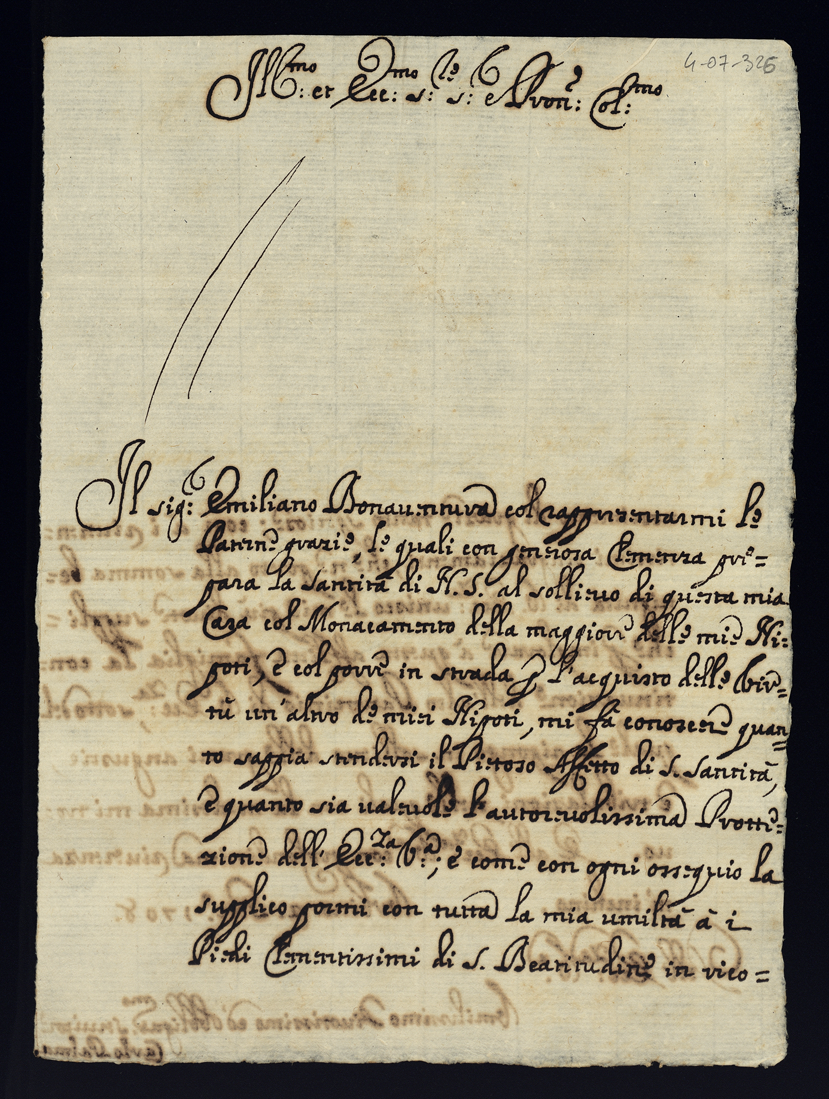 4-07-326
Ill:mo et Ecc:mo s:re s: e Pron:e Col:mo
Il sig: Emiliano Bonaventura col rappresentarmi le
Paterne grazie, le quali con generosa Clemenza pre=
para la Santità di N. S. al sollievo di questa mia
Casa col Monacamento della maggiore delle mie Ni=
poti, e col porre in strada p l'acquisto delle Vir=
tù un'altro de miei Nipoti, mi fà conoscere quan=
to sappia stendersi il Pietoso Affetto di S. Santità,
e quanto sia valevole l'autorevolissima Protte=
zione dell'Ecc:za V:a; e come con ogni ossequio la
supplico pormi con tutta la mia umiltà à i
Piedi Clementissimi di S. Beatitudine in rico=